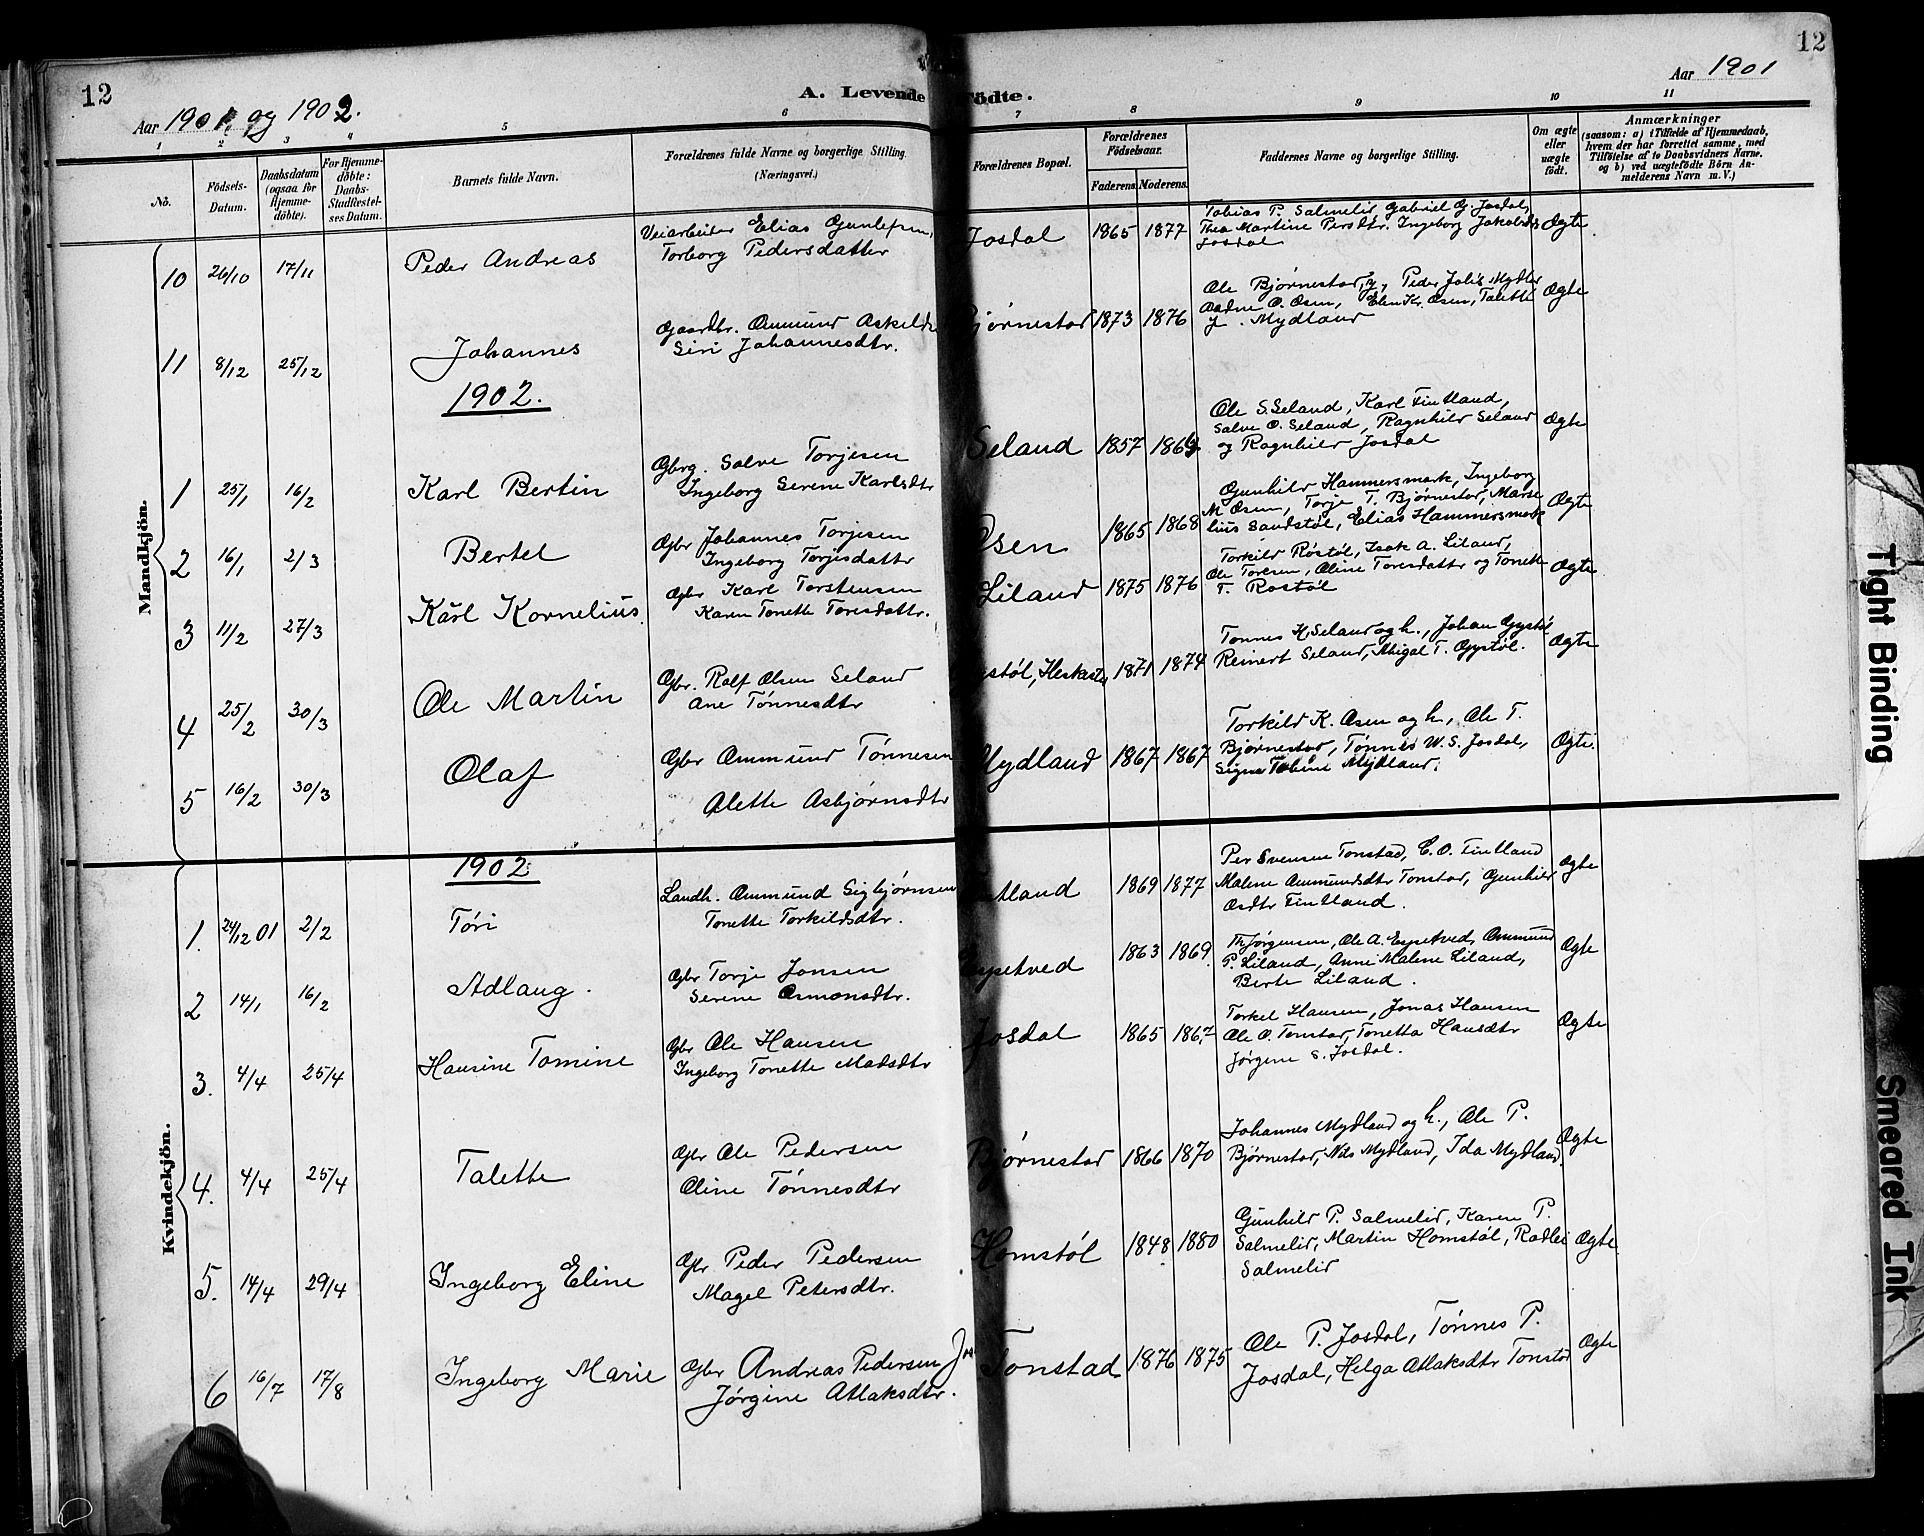 12
A. Levende Födte.
12
Aar 1901 og 1902.
Aar 1901
1 2 3 4 5 6 7 8 9 10 11
No.
Födsels-Datum.
Daabsdatum (ogsaa for Hjemme-döbte).
For Hjemme-döbte: Daabs-Stadfæstel-ses Datum.
Barnets fulde Navn.
Forældrenes fulde Navne og borgerlige Stilling.
(Næringsvei.)
Forældrenes Bopæl.
Forældrenes Födselsaar.
Faderens. Moderens.
Faddernes Navne og borgerlige Stilling.
Om ægte eller uægte födt.
Anmærkninger
(saasom: a) i Tilfælde af Hjemmedaab, hvem der har forrettet samme, med Tilföielse af to Daabsvidners Navne. og b) ved uægtefödte Börn An-melderens Navn m. V.)
Mandkjön.
10 26/10 17/11 Peder Andreas
Veiarbeider Elias Gunlefsen,
Torborg Pedersdatter
Josdal 1865 1877
Tobias P. Salmelid Gabriel G. Josdal,
Thea Martine Persdtr. Ingeborg Jakobsdtr
Josdal
Ægte
11 8/12 25/12 Johannes
Gaardbr. Ommund Askilds
Siri Johannesdtr.
Bjørnestad 1873 1876
Ole Bjørnestad, Peder Johs Mydland
Aadne O. Osen, Elen Kr. Osen, Talette
J. Mydland
Ægte
1902.
1 25/1 16/2 Karl Bertin
Gbrg. Salve Torjesen
Ingeborg Serene Karlsdtr
Seland 1857 1864
Ole S. Seland, Karl Fintland,
Salve O. Seland, Ragnhild Seland
og Ragnhild Josdal
Ægte
2 16/1 2/3 Bertel
Gbr Johannes Torjesen
Ingeborg Torjesdattr
Osen 1865 1868
Gunhild Hammersmark, Ingeborg
M Osen, Torje T. Bjørnestad, Marse
lius Sandstøl, Elias Hammersmark
Ægte
3 11/2 27/3 Karl Kornelius
Gbr Karl Torstensen
Karen Tonette Toresdattr.
Liland 1875 1876
Torkild Røstøl, Isak A. Liland,
Ole Toresen, Oline Toresdattr og Tonette
T. Rostøl
Ægte
4 25/2 30/3 Ole Martin
Gbr. Rolf Olsen Seland
Ane Tønnesdtr
Gystøl, Heskestad 1871 1874
Tonnes H. Seland og h., Johan Gystøl
Reinert Seland, Abigal T. Gystøl.
Ægte
5 16/2 30/3 Olaf
Gbr Ommund Tønnesen
Alette Asbjørnsdtr
Mydland 1867 1867
Torkild K. Osen og h., Ole T.
Bjørnestad, Tønnes W. S. Josdal,
Signe Tobine Mydland.
Ægte.
Kvindekjön.
1902
1. 24/12 01 2/2 Tøri
Landh. Ommund Sigbjørnsen
Tonette Torkildsdtr.
Fintland 1869 1877
Per Svensen Tonstad, C. O. Fintland
Malene Ommundsdtr Tonstad, Gunhild
Osdtr Fintland.
Ægte
2 14/1 16/2 Adlaug.
Gbr Torje Jonsen
Serene Osmonsdtr.
Espetved 1863 1869.
Th. Jørgensen, Ole A. Espetved, Ommund
P. Liland, Anne Malene Liland,
Berte Liland.
Ægte
3. 4/4 25/4 Hansine Tomine
Gbr Ole Hansen
Ingeborg Tonette Madsdtr
Josdal 1865 1867
Torkel Hansen, Jonas Hansen
Ole O. Tonstad, Tonetta Hansdtr
Jørgine S. Josdal.
Ægte
4. 4/4 25/4 Talette
Gbr Ole Pedersen
Oline Tønnesdtr
Bjørnestad 1866 1870
Johannes Mydland og h., Ole P.
Bjørnestad, Nils Mydland, Ida Mydland.
Ægte
5. 14/4 29/4 Ingeborg Eline
Gbr Peder Pedersen
Magel Petersdtr.
Homstøl 1848 1880
Gunhild P. Salmelid, Karen P.
Salmelid, Martin Homstøl, Radlei
Salmelid
Ægte
6 16/7 17/8 Ingeborg Marie
Gbr Andreas Pedersen Jos
Jørgine Atlaksdtr.
Tonstad 1876 1875
Ole P. Josdal, Tønnes P.
Josdal, Helga Atlaksdtr Tonstad
Ægte
Tight Binding
Smeared Ink